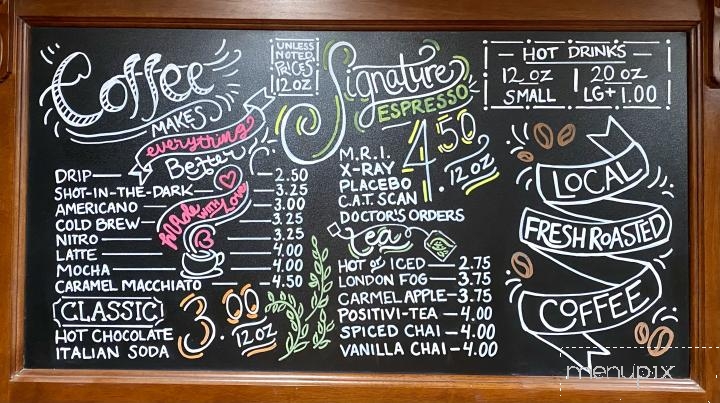 Coffee
MAKES
everything
Better
DRIP 2.50
SHOT-IN-THE-DARK 3.25
AMERICANO 3.00
COLD BREW 3.25
NITRO 3.25
LATTE 4.00
MOCHA 4.00
CARAMEL MACCHIATO 4.50
made with Love
CLASSIC
3.00
12 OZ
HOT CHOCOLATE
ITALIAN SODA
UNLESS
NOTED,
PRICES
12 OZ
Signature
ESPRESSO
4.50
12 OZ
M.R.I.
X-RAY
PLACEBO
C.A.T. SCAN
DOCTOR'S ORDERS
tea
HOT or ICED 2.75
LONDON FOG 3.75
CARMEL APPLE 3.75
POSITIVI-TEA 4.00
SPICED CHAI 4.00
VANILLA CHAI 4.00
HOT DRINKS
12 OZ 20 OZ
SMALL LG+1.00
LOCAL
FRESH ROASTED
COFFEE
menupix